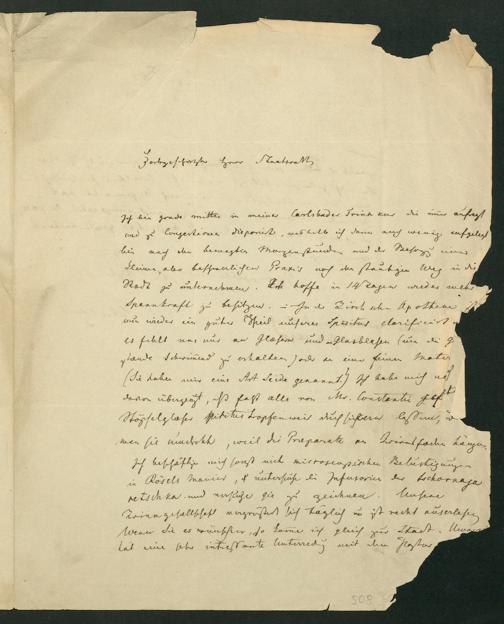 Hochgeschätzter Herr Staatsrath,
Ich bin grade mitten in meiner Carlsbader Trink kur die mich anfangs
und zu Congestionen disponirt, weshalb ich denn auch wenig aufgelegt
bin nach den bewegten Morgenstunden und der Besorg meiner
kleinen, aber beschwerlichen Praxis noch den staubigen Weg in die
Stadt zu unternehmen. Ich hoffe in 14 Tagen wieder mehr
Spannkraft zu besitzen. – In der Apotheke
wir wieder ein guter Theil unseres Spiritus clarificirt
es fehlt uns nur an Gläsern und Glasblasen (um die
stände schwimmend zu erhalten) oder an einer feinen
(Sie haben mir eine Art Seide genannt) Ich habe mich
davon überzeugt, daß fast alle von Mr. Constantin
Stöpselgläser Spiritus tropfenweis durchsickern lassen,
man sie umdreht, weil die Praeparate an Zwirnsfaden hängen.
Ich beschäftige mich sonst mit microscopischen Belustigungen
in Rösels Manier, u untersuche die Infusorien der Tschornaja
retschka und versuche sie zu zeichnen. Unsere
Trinkgesellschaft vergrößert sich täglich u ist recht auserlesen
Wenn Sie es wünschen, so komme ich gleich zur Stadt.
hat eine sehr interessante Unterredung mit dem
508